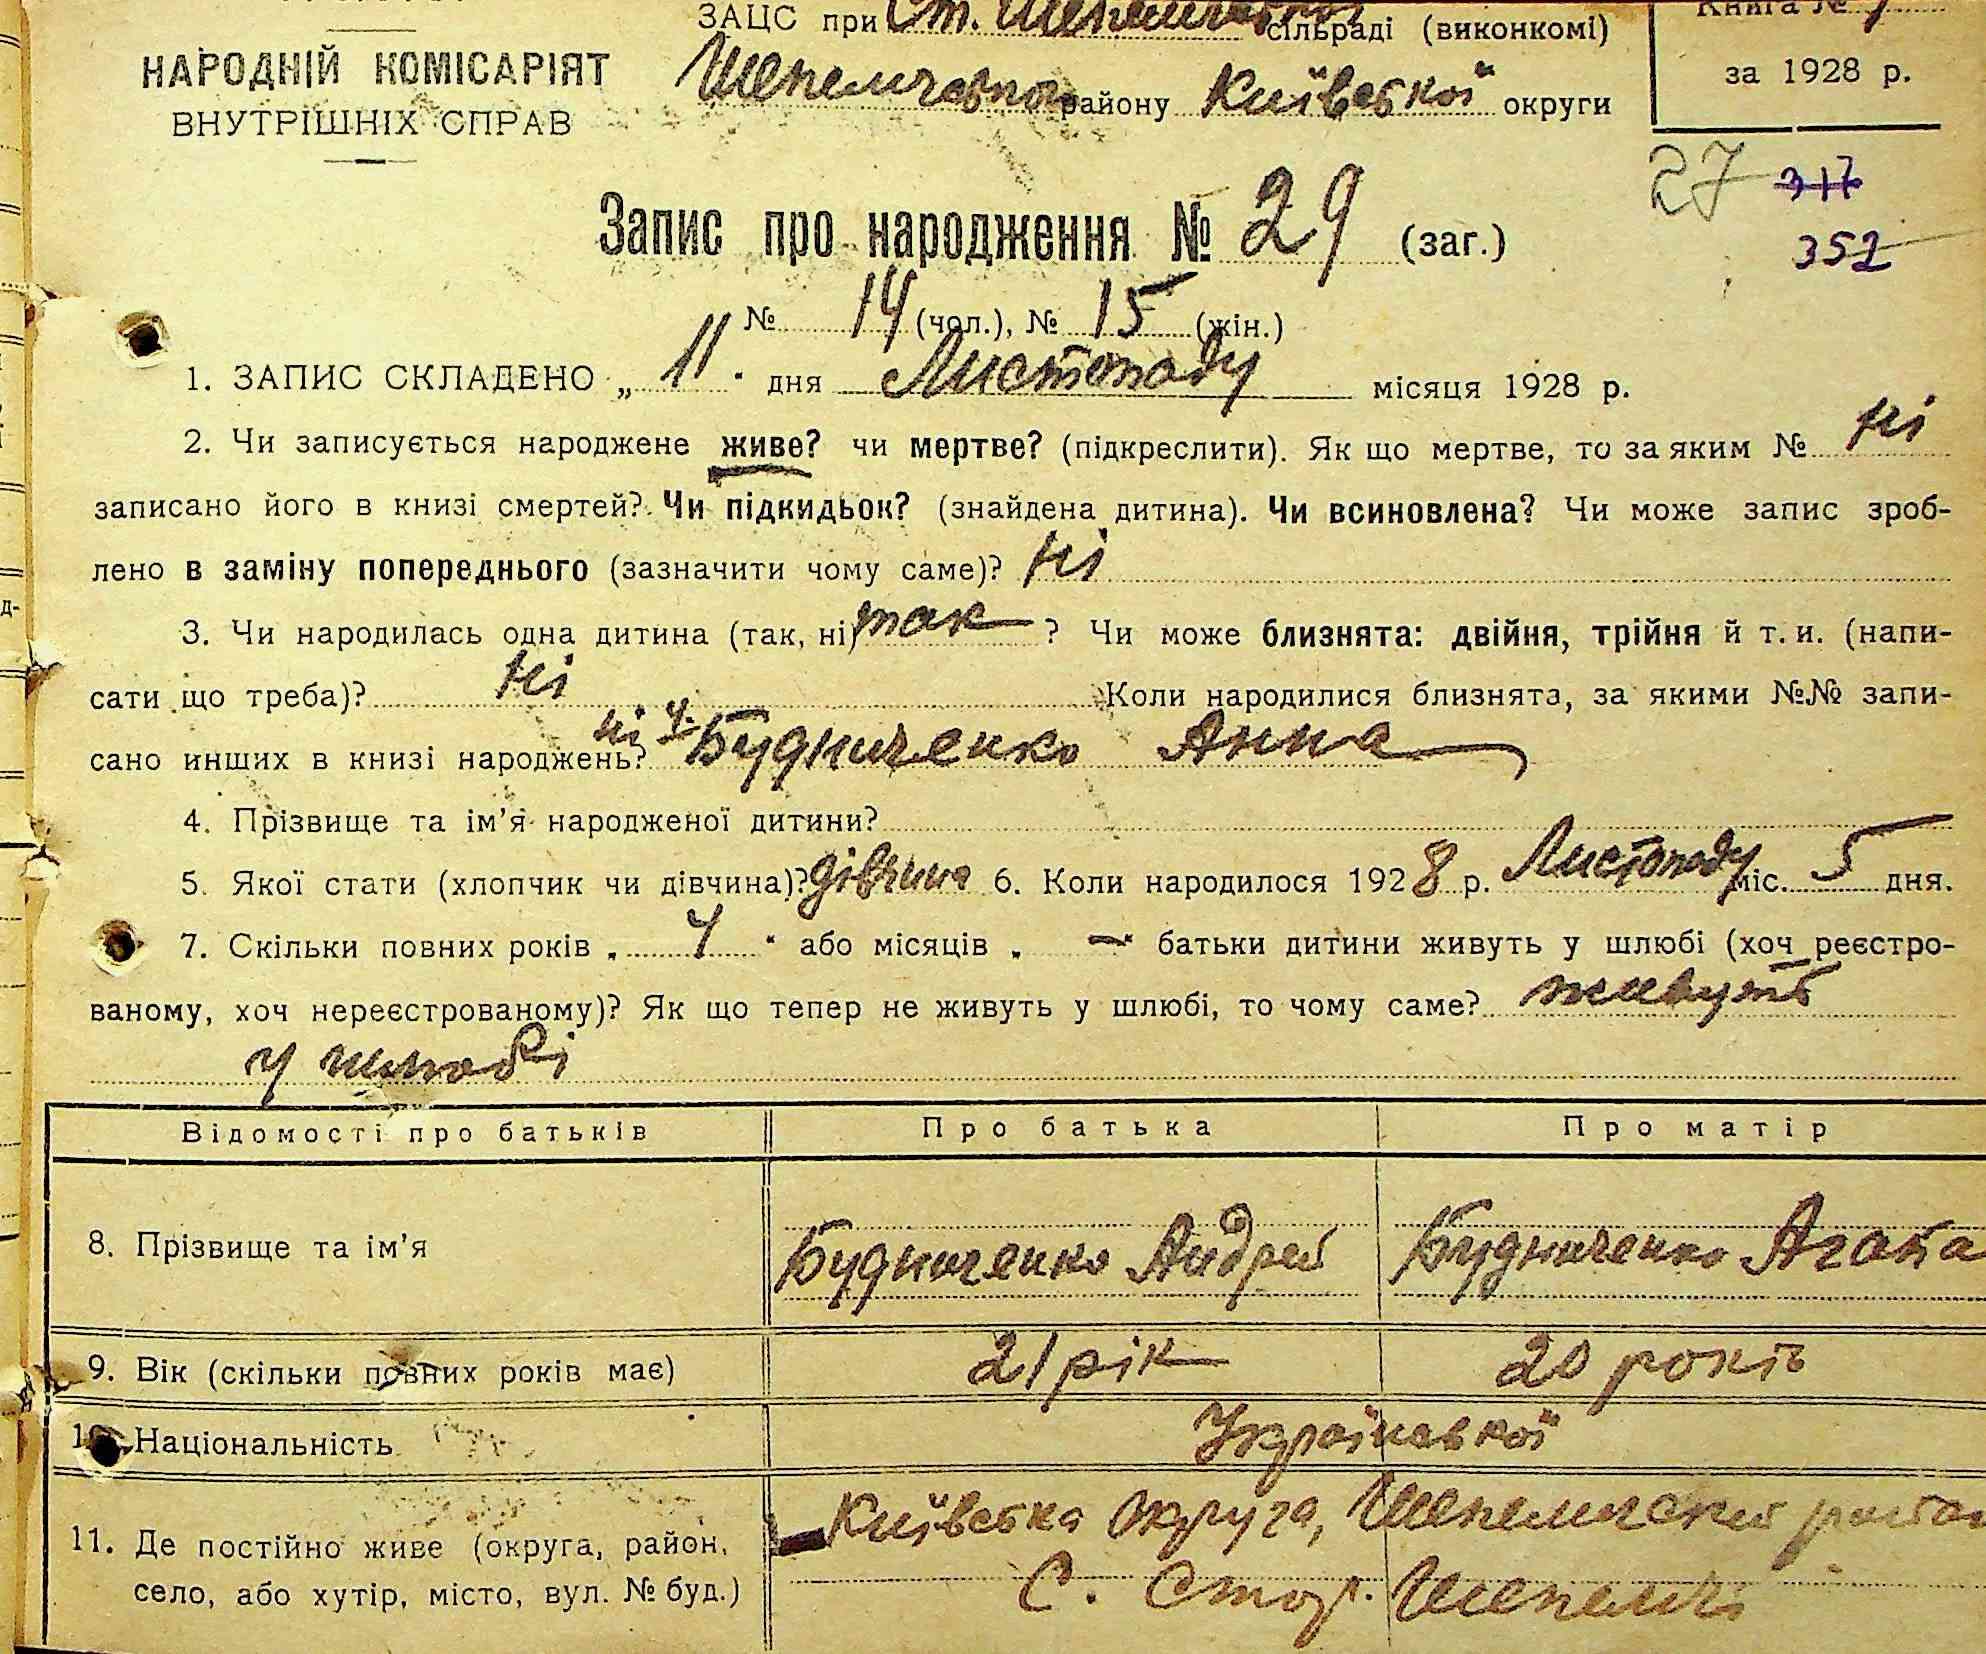 ЗАЦС при Ст. Шепелицької сільраді (виконкомі)
Книга №
НАРОДНІЙ КОМІСАРІЯТ
ВНУТРІШНІХ СПРАВ
Шепелицького району Київської округи
за 1928 р.
27 317
352
Запис про народження № 29 (заг.)
№ 14 (чол.), № 15 (жін.)
1. ЗАПИС СКЛАДЕНО „ 11 " дня Листопаду місяця 1928 р.
2. Чи записується народжене живе? чи мертве? (підкреслити). Як що мертве, то за яким № ні
записано його в книзі смертей? Чи підкидьок? (знайдена дитина). Чи всиновлена? Чи може запис зроб-
лено в заміну попереднього (зазначити чому саме)? ні
3. Чи народилась одна дитина (так, ні) так ? Чи може близнята: двійня, трійня й т. и. (напи-
сати що треба)? ні Коли народилися близнята, за якими №№ запи-
сано инших в книзі народжень? ні 4. Будниченко Анна
4. Прізвище та ім'я народженої дитини?
5. Якої стати (хлопчик чи дівчина)? дівчина 6. Коли народилося 1928 р. Листопаду міс. 5 дня.
7. Скільки повних років „ 4 " або місяців „ — " батьки дитини живуть у шлюбі (хоч реєстро-
ваному, хоч нереєстрованому)? Як що тепер не живуть у шлюбі, то чому саме? живуть
у шлюбі
Відомості про батьків Про батька Про матір
8. Прізвище та ім'я Будниченко Андрей Будниченко Агата
9. Вік (скільки повних років має) 21 рік 20 років
10. Національність Української
11. Де постійно живе (округа, район, Київська округа, Шепелицский район
село, або хутір, місто, вул. № буд.) С. Стар. Шепеличі